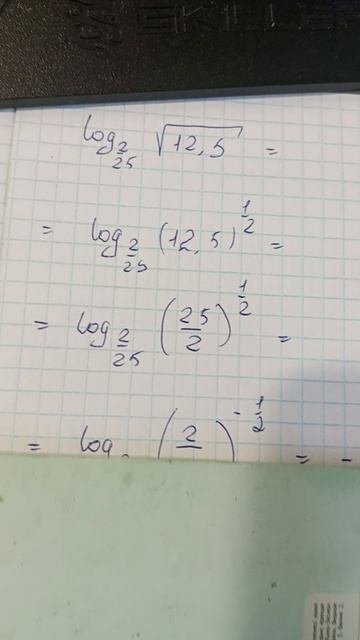 log_{2/25} √12,5 =
= log_{2/25} (12,5)^{1/2} =
= log_{2/25} (25/2)^{1/2} =
= log (2/ )^{-1/2} = -